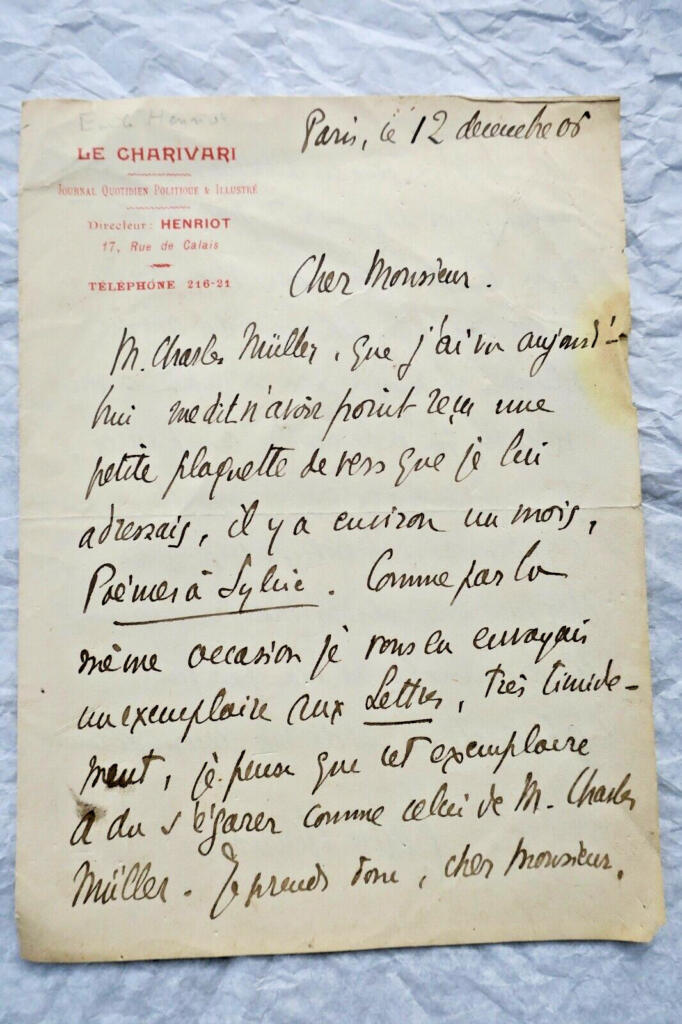 Emile Henriot
LE CHARIVARI
JOURNAL QUOTIDIEN POLITIQUE & ILLUSTRÉ
Directeur: HENRIOT
17, Rue de Calais
TÉLÉPHONE 216-21
Paris, le 12 decembre 06
Cher Monsieur.
M. Charles Müller, que j'ai vu aujourd'-
hui me dit n'avoir point reçu une
petite plaquette de vers que je lui
adressais, il y a environ un mois,
Poèmes à Sylvie. Comme par la
même occasion je vous en envoyais
un exemplaire aux Lettres, très timide-
ment, je pense que cet exemplaire
a du s'égarer comme celui de M. Charles
Müller. Je prends donc, cher Monsieur,